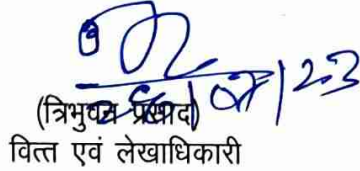 (त्रिभुवन प्रसाद)
वित्त एवं लेखाधिकारी